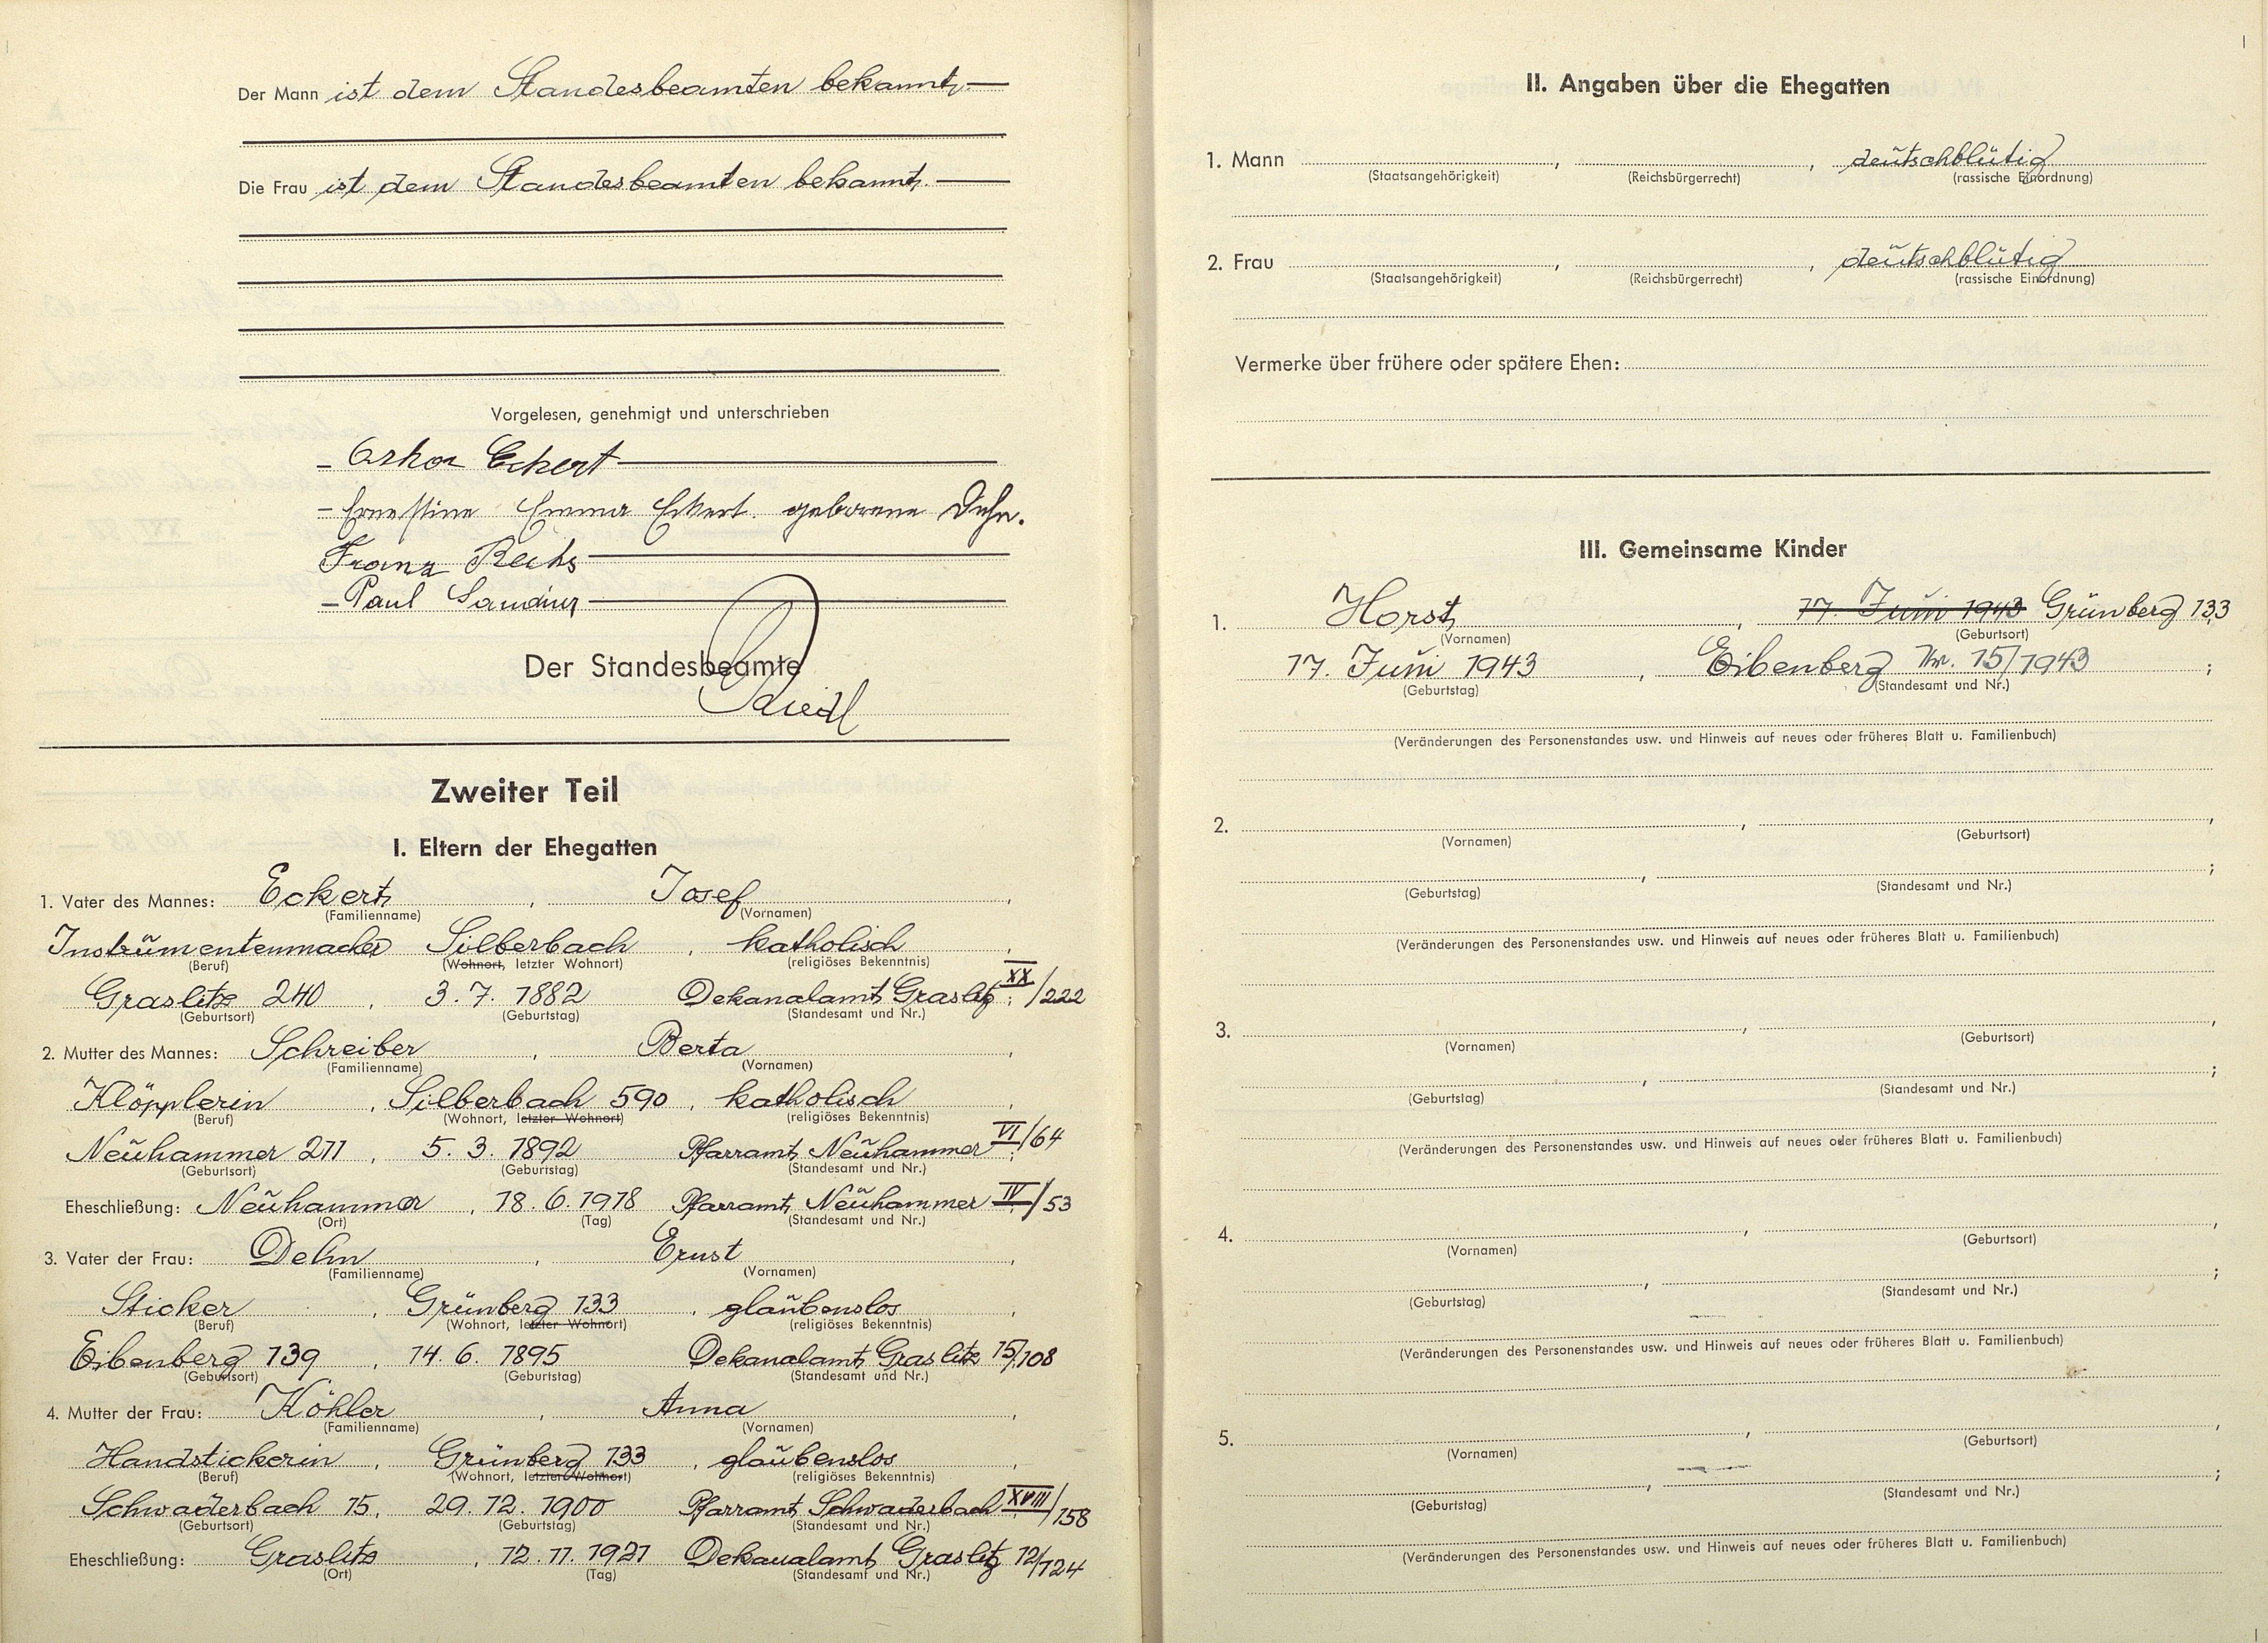 Der Mann ist dem Standesbeamten bekannt.
Die Frau ist dem Standesbeamten bekannt.
Vorgelesen, genehmigt und unterschrieben
Oskar Eckert
Ernestine Emma Eckert geborene Dehn.
Franz
Paul
Der Standesbeamte
Zweiter Teil
I. Eltern der Ehegatten
1. Vater des Mannes: Eckert, Josef,
(Familienname) (Vornamen)
Instrumentenmacher Silberbach, katholisch,
(Beruf) (Wohnort, letzter Wohnort) (religiöses Bekenntnis)
Graslitz 240, 3. 7. 1882 Dekanalamt Graslitz XX/222
(Geburtsort) (Geburtstag) (Standesamt und Nr.)
2. Mutter des Mannes: Schreiber, Berta,
(Familienname) (Vornamen)
Klöpplerin, Silberbach 590, katholisch,
(Beruf) (Wohnort, letzter Wohnort) (religiöses Bekenntnis)
Neuhammer 211, 5. 3. 1892 Pfarramt Neuhammer VI/64
(Geburtsort) (Geburtstag) (Standesamt und Nr.)
Eheschließung: Neuhammer, 18. 6. 1918 Pfarramt Neuhammer IV/53
(Ort) (Tag) (Standesamt und Nr.)
3. Vater der Frau: Dehn, Ernst,
(Familienname) (Vornamen)
Sticker, Grünberg 133, glaubenslos,
(Beruf) (Wohnort, letzter Wohnort) (religiöses Bekenntnis)
Eibenberg 139, 14. 6. 1895 Dekanalamt Graslitz 15/108
(Geburtsort) (Geburtstag) (Standesamt und Nr.)
4. Mutter der Frau: Köhler, Anna,
(Familienname) (Vornamen)
Handstickerin, Grünberg 133, glaubenslos,
(Beruf) (Wohnort, letzter Wohnort) (religiöses Bekenntnis)
Schwaderbach 15, 29. 12. 1900 Pfarramt Schwaderbach XVIII/158
(Geburtsort) (Geburtstag) (Standesamt und Nr.)
Eheschließung: Graslitz, 12. 11. 1921 Dekanalamt Graslitz 12/124
(Ort) (Tag) (Standesamt und Nr.)
II. Angaben über die Ehegatten
1. Mann , , deutschblütig
(Staatsangehörigkeit) (Reichsbürgerrecht) (rassische Einordnung)
2. Frau , , deutschblütig
(Staatsangehörigkeit) (Reichsbürgerrecht) (rassische Einordnung)
Vermerke über frühere oder spätere Ehen:
III. Gemeinsame Kinder
1. Horst, 17. Juni 1943 Grünberg 133,
(Vornamen) (Geburtsort)
17. Juni 1943, Eibenberg Nr. 15/1943;
(Geburtstag) (Standesamt und Nr.)
(Veränderungen des Personenstandes usw. und Hinweis auf neues oder früheres Blatt u. Familienbuch)
2. , ,
(Vornamen) (Geburtsort)
, ;
(Geburtstag) (Standesamt und Nr.)
(Veränderungen des Personenstandes usw. und Hinweis auf neues oder früheres Blatt u. Familienbuch)
3. , ,
(Vornamen) (Geburtsort)
, ;
(Geburtstag) (Standesamt und Nr.)
(Veränderungen des Personenstandes usw. und Hinweis auf neues oder früheres Blatt u. Familienbuch)
4. , ,
(Vornamen) (Geburtsort)
, ;
(Geburtstag) (Standesamt und Nr.)
(Veränderungen des Personenstandes usw. und Hinweis auf neues oder früheres Blatt u. Familienbuch)
5. , ,
(Vornamen) (Geburtsort)
, ;
(Geburtstag) (Standesamt und Nr.)
(Veränderungen des Personenstandes usw. und Hinweis auf neues oder früheres Blatt u. Familienbuch)